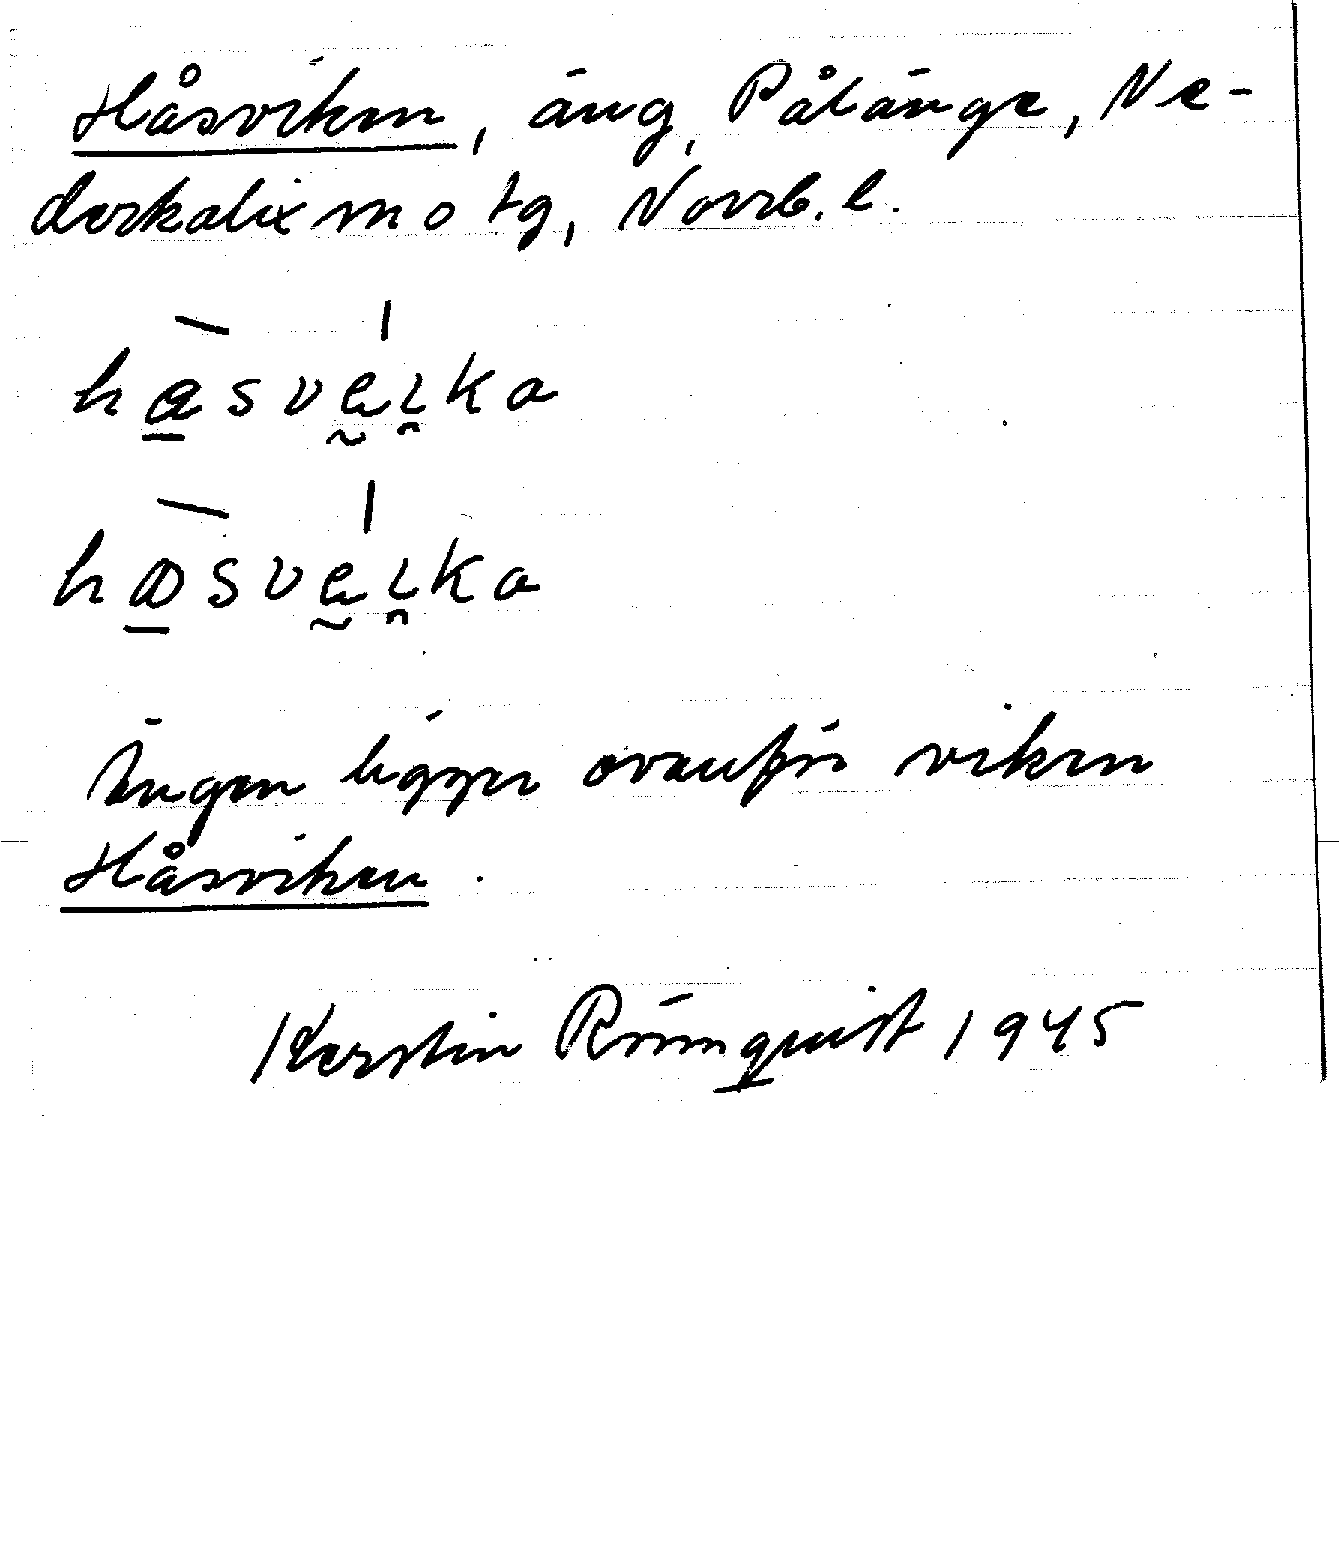 Håsviken, äng, Pålänge, Ne-
derkalix m o tg, Norrb. l.
hasveika
håsveika
Ängen ligger ovanför viken
Håsviken.
Kerstin Römquist 1945